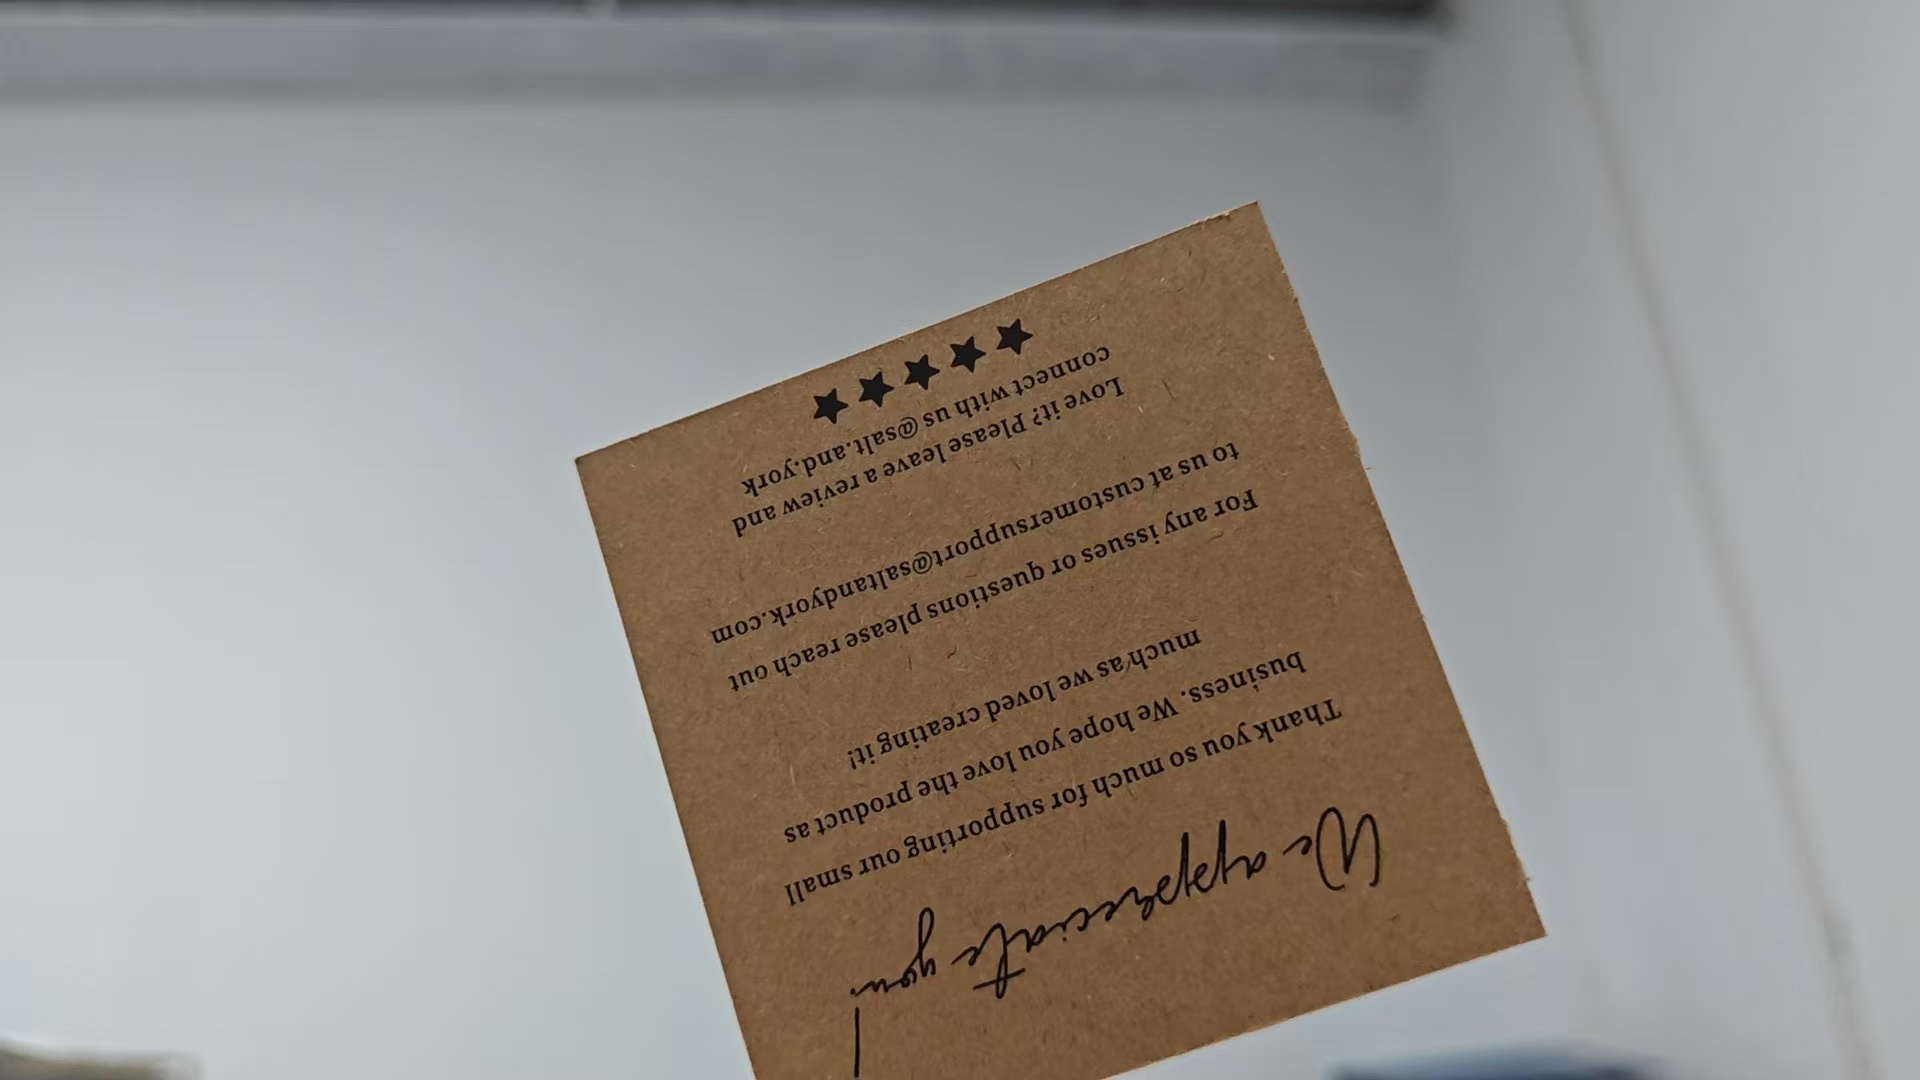 We appreciate you!
Thank you so much for supporting our small
business. We hope you love the product as
much as we loved creating it!
For any issues or questions please reach out
to us at customersupport@saltandyork.com
Love it? Please leave a review and
connect with us @salt.and.york